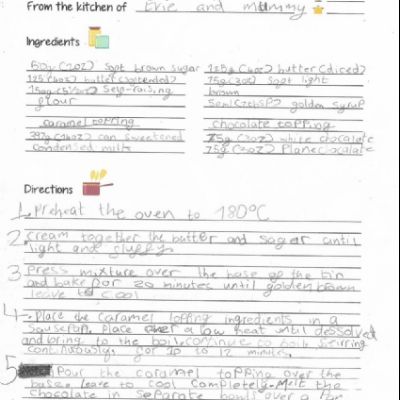 From the kitchen of Evie and mummy
Ingredients
50g (2oz) soft brown sugar
125 (4oz) butter (softended)
150g (5½oz) Self-raising
flour
caramel topping
397g (14oz) can sweetened
condensed milk
125g (4oz) butter (diced)
75g (3oz) soft light
brown
5ml (2tbsp) golden syrup
chocolate topping
75g (3oz) white chocolate
75g (3oz) Plane clocalate
Directions
1. Preheat the oven to 180°C
2. cream together the butter and sugar until
light and fluffy
3 Press mixture over the base of the tin
and bake for 20 minutes until golden brown
leave to cool
4. Place the caramel topping ingredients in a
Place a low heat until dessolved
and bring to the boil, continue to boil Stirring
continuously. for 10 to 12 minutes.
5 Pour the caramel topping over the
base, leave to cool completely. Melt the
chocolate in separate bowls over a